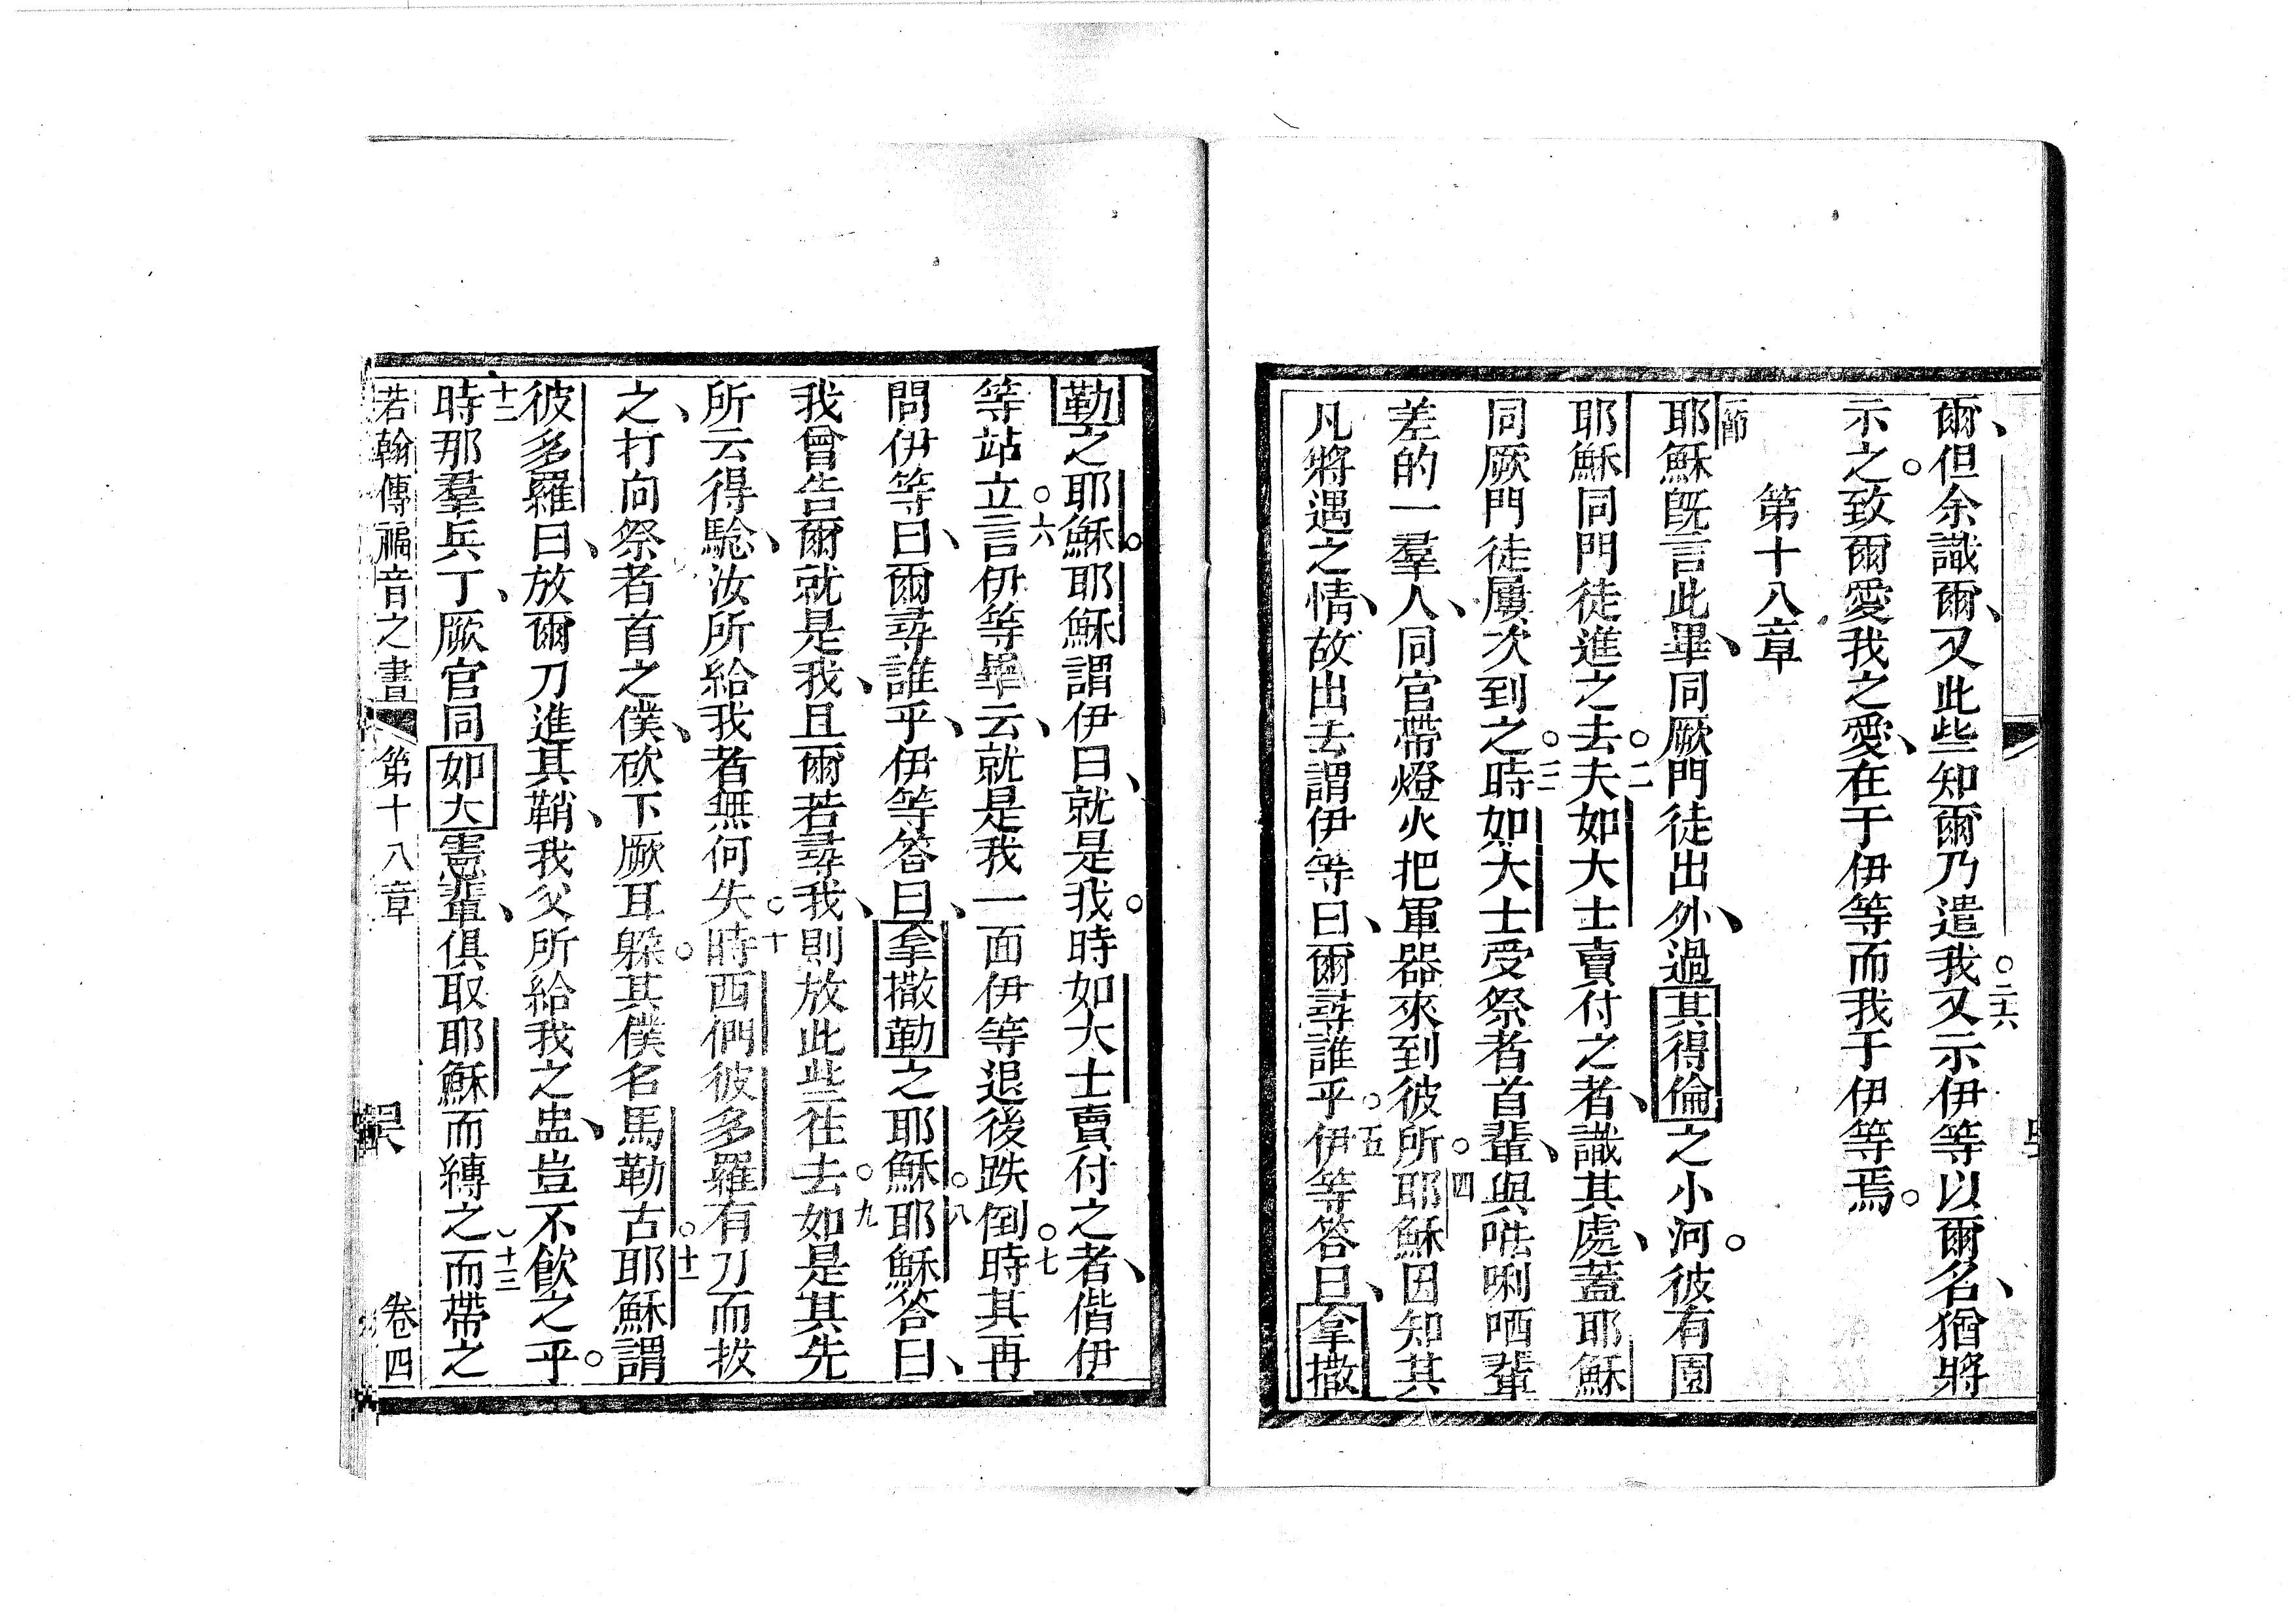 爾、但余識爾、又此些知爾乃遣我。二六又示伊等以爾名、猶將
示之。致爾愛我之愛、在于伊等而我于伊等焉。
第十八章
一節耶穌既言此畢、同厥門徒出外、過其得倫之小河。彼有園
耶穌同門徒進之去。二夫如大士賣付之者、識其處、蓋耶穌
同厥門徒屢次到之。三時如大士受祭者首輩、與𠵽唎哂輩
差的一羣人、同官帶燈火把軍器來到彼所。四耶穌因知其
凡將遇之情、故出去謂伊等曰、爾尋誰乎。五伊等答曰、拿撒
勒之耶穌。耶穌謂伊曰、就是我。時如大士賣付之者、偕伊
等站立。六言伊等畢云、就是我一面伊等退後跌倒。七時其再
問伊等曰、爾尋誰乎、伊等答曰、拿撒勒之耶穌。八耶穌答曰、
我曾告爾就是我、且爾若尋我、則放此些往去。九如是其先
所云得騐、汝所給我者無何失。十時西們彼多羅有刀而拔
之、打向祭者首之僕、砍下厥耳躲。其僕名馬勒古。十一耶穌謂
彼多羅曰、放爾刀進其鞘、我父所給我之盅、豈不飲之乎。
十二時那羣兵丁、厥官同如大憲輩、俱取耶穌而縛之。十三而帶之
若翰傳福音之書 第十八章 卷四